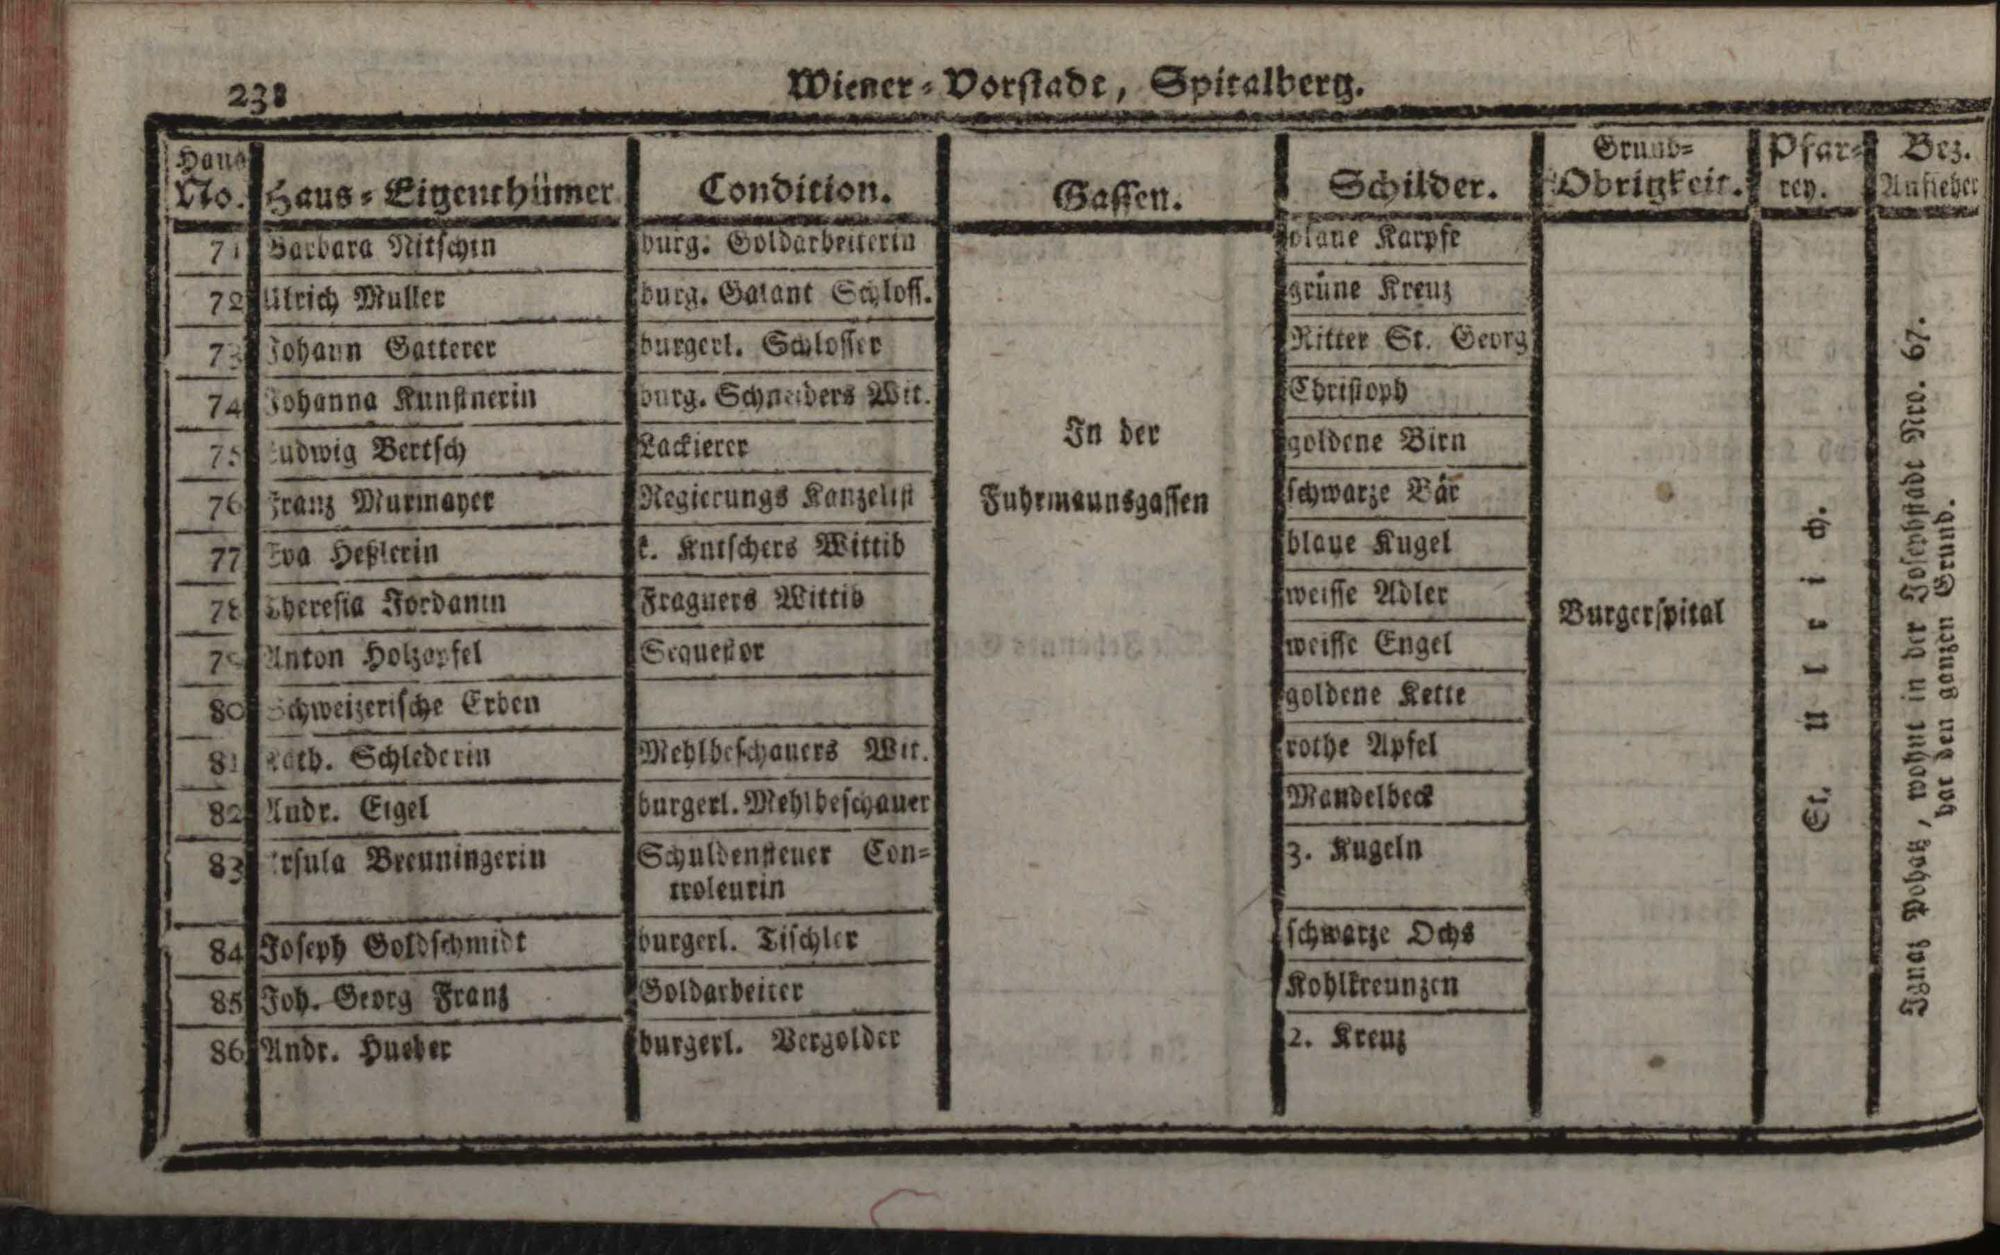 238
Wiener-Vorstadt, Spitalberg.
Haus No. Haus-Eigenthümer Condition. Gassen. Schilder. Grund-Obrigkeit. Pfar-rey. Bez. Aufseher
71 Barbara Nitschin burg. Goldarbeiterin blaue Karpfe
72 Ulrich Muller burg. Galant Schloss. grüne Kreuz
73 Johann Gatterer burgerl. Schlosser Ritter St. Georg
74 Johanna Kunstnerin burg. Schneiders Wit. Christoph
75 Ludwig Bertsch Lackierer goldene Birn
76 Franz Murmayer Regierungs Kanzelist schwarze Bär
77 Eva Heßlerin k. Kutschers Wittib blaue Kugel
78 Theresia Jordanin Fragners Wittib weisse Adler
79 Anton Holzapfel Sequestor weisse Engel
80 Schweizerische Erben goldene Kette
81 Kath. Schlederin Mehlbeschauers Wit. rothe Apfel
82 Andr. Eigel burgerl. Mehlbeschauer Mandelbeck
83 Ursula Breuningerin Schuldensteuer Con-
troleurin 3. Kugeln
84 Joseph Goldschmidt burgerl. Tischler schwarze Ochs
85 Joh. Georg Franz Goldarbeiter Kohlkreunzen
86 Andr. Hueber burgerl. Vergolder 2. Kreuz
In der
Fuhrmannsgassen
Burgerspital
St. Ulrich.
Ignatz Pohatz, wohnt in der Josephstadt Nro. 67.
hat den ganzen Grund.